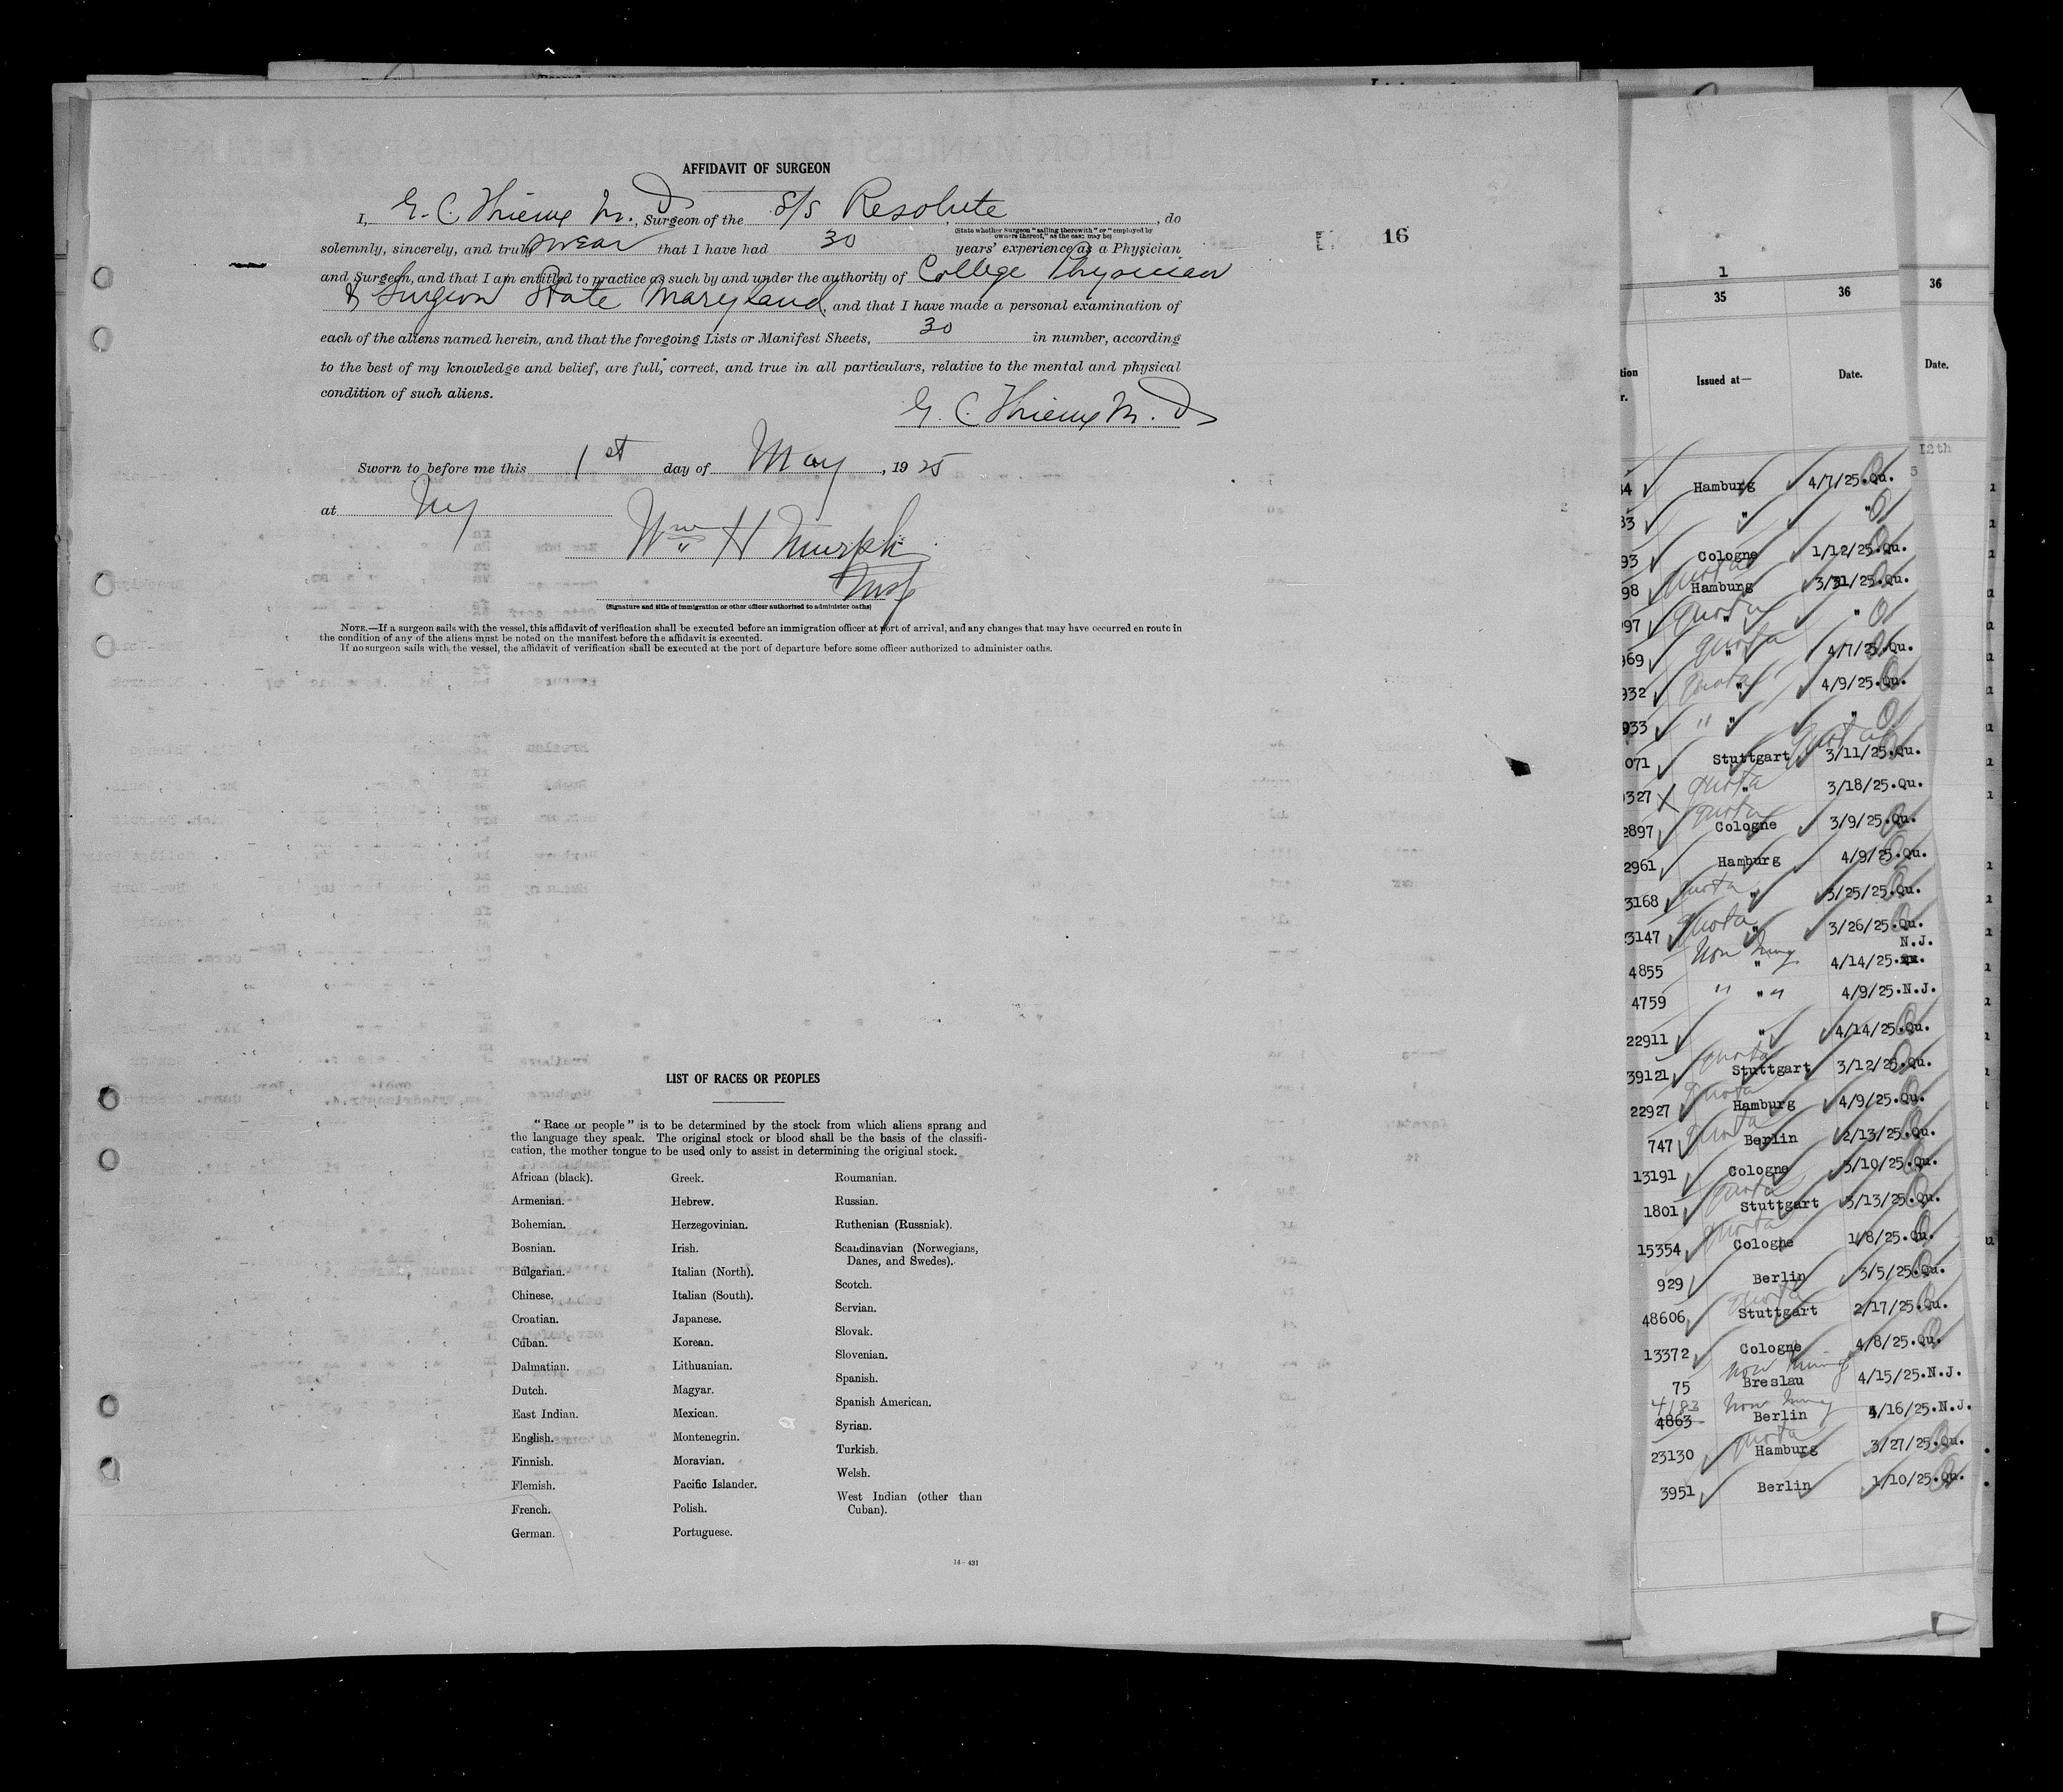 AFFIDAVIT OF SURGEON
I, G. C. Thieme M. D., Surgeon of the S/S Resolute, do
(State whether Surgeon "sailing therewith" or "employed by
owners thereof," as the case may be)
16
solemnly, sincerely, and truly swear that I have had 30 years' experience as a Physician
and Surgeon, and that I am entitled to practice as such by and under the authority of College Physician
& Surgeon State Maryland, and that I have made a personal examination of
each of the aliens named herein, and that the foregoing Lists or Manifest Sheets, 30 in number, according
to the best of my knowledge and belief, are full, correct, and true in all particulars, relative to the mental and physical
condition of such aliens.
G. C. Thieme M. D
Sworn to before me this 1st day of May, 1925
at NY
Wm H Murph
Insp
(Signature and title of immigration or other officer authorized to administer oaths)
NOTE.—If a surgeon sails with the vessel, this affidavit of verification shall be executed before an immigration officer at port of arrival, and any changes that may have occurred en route in
the condition of any of the aliens must be noted on the manifest before the affidavit is executed.
If no surgeon sails with the vessel, the affidavit of verification shall be executed at the port of departure before some officer authorized to administer oaths.
LIST OF RACES OR PEOPLES
"Race or people" is to be determined by the stock from which aliens sprang and
the language they speak. The original stock or blood shall be the basis of the classifi-
cation, the mother tongue to be used only to assist in determining the original stock.
African (black).
Armenian.
Bohemian.
Bosnian.
Bulgarian.
Chinese.
Croatian.
Cuban.
Dalmatian.
Dutch.
East Indian.
English.
Finnish.
Flemish.
French.
German.
Greek.
Hebrew.
Herzegovinian.
Irish.
Italian (North).
Italian (South).
Japanese.
Korean.
Lithuanian.
Magyar.
Mexican.
Montenegrin.
Moravian.
Pacific Islander.
Polish.
Portuguese.
Roumanian.
Russian.
Ruthenian (Russniak).
Scandinavian (Norwegians,
Danes, and Swedes).
Scotch.
Servian.
Slovak.
Slovenian.
Spanish.
Spanish American.
Syrian.
Turkish.
Welsh.
West Indian (other than
Cuban).
14—431
1
35 36 36
Issued at— Date. Date.
12th
34 Hamburg 4/7/25.Qu.
33 " "
93 Cologne 1/12/25.Qu.
98 quota Hamburg 3/31/25.Qu.
997 quota " "
969 quota " 4/7/25.Qu.
932 quota " 4/9/25.Qu.
933 " " "
071 Stuttgart quota 3/11/25.Qu.
327 quota " 3/18/25.Qu.
2897 quota Cologne 3/9/25.Qu.
2961 Hamburg 4/9/25.Qu.
3168 quota " 3/25/25.Qu.
3147 quota " 3/26/25.Qu.
4855 Non Immg " 4/14/25. N.J.
4759 " " " 4/9/25.N.J.
22911 " 4/14/25.Qu.
39121 quota Stuttgart 3/12/25.Qu.
22927 quota Hamburg 4/9/25.Qu.
747 quota Berlin 2/13/25.Qu.
13191 Cologne 3/10/25.Qu.
1801 quota Stuttgart 3/13/25.Qu.
15354 quota Cologne 1/8/25.Qu.
929 Berlin 3/5/25.Qu.
48606 quota Stuttgart 2/17/25.Qu.
13372 Cologne 4/8/25.Qu.
75 Non Immg Breslau 4/15/25.N.J.
4183 4863 Non Immg Berlin 4/16/25.N.J.
23130 quota Hamburg 3/27/25.Qu.
3951 Berlin 1/10/25.Qu.